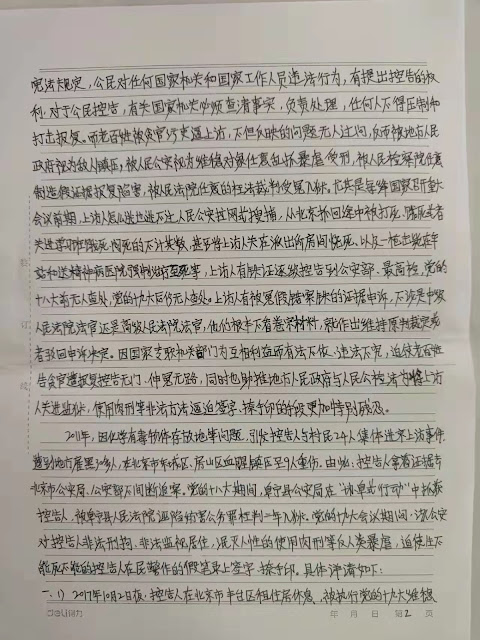 宪法规定，公民对任何国家机关和国家工作人员违法行为，有提出控告的权
利。对于公民控告，有关国家机关必须查清事实，负责处理，任何人不得压制和
打击报复。而老百姓被贪官污吏逼上访，不但反映的问题无人过问，反而被地方人民
政府视为敌人镇压，被人民公安视为维稳对象任意乱抓暴虐受刑，被人民检察院任意
制造假证据报复陷害，被人民法院任意的枉法裁判受冤入狱。尤其是每年国家召开重大
会议前期，上访人怎么逃也逃不过人民公安拉网式搜捕，从北京抓回途中被打死、
关进学习班
内死的不计其数，甚至将上访人关在派出所房间烧死，以及一枪击毙在车
站和送精神病医院强制治疗至死等，上访人有铁证逐级控告到公安部、最高检，党的
十八大前无人查处，党的十九大后仍无人查处。上访人有被冤假错案铁的证据申诉，不论是中级
人民法院法官还是高级人民法院法官，他们根本不看卷宗材料，就作出维持原判裁定或
者驳回申诉决定。因国家
机关部门为互相利益而有法不依、违法不究，迫使老百姓
告贪官遭报复控告无门、伸冤无路，同时也助推地方人民政府与人民公检法
将上访
人关进监狱，使用肉刑等非法方法逼迫签字、按手印的手段更加特别残忍。
2011年，因化学有毒物件存放地等问题，引发控告人与村民24人集体进京上访事件，
遭到地方雇黑30多人，在北京市东城区、房山区血腥镇压至9人重伤。由此，控告人拿着证据去
北京市公安局、公安部不间断追案。党的十八大期间，阜宁县公安局在
行动”中抓获
控告人，被阜宁县人民法院诬陷妨害公务罪枉判二年入狱。党的十九大会议期间，该公安
对控告人非法刑拘、非法监视居住，泯灭人性的使用肉刑等反人类暴虐，迫使生不
能死不能的控告人在民警作的假笔录上签字、按手印。具体详情如下：
一、1）2017年10月2日夜，控告人在北京市丰台区租住房休息，被执行党的十九大维稳
deli得力
年 月 日 第2页